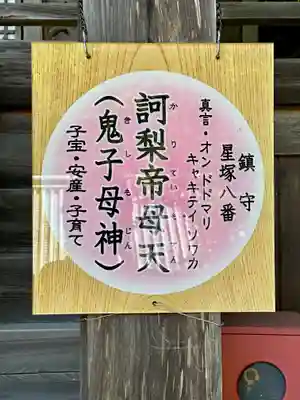 鎮守
星塚八番
真言・オンドドマリ
キャキテイソワカ
訶梨帝母天
かりていもてん
(鬼子母神)
きしもじん
子宝・安産・子育て